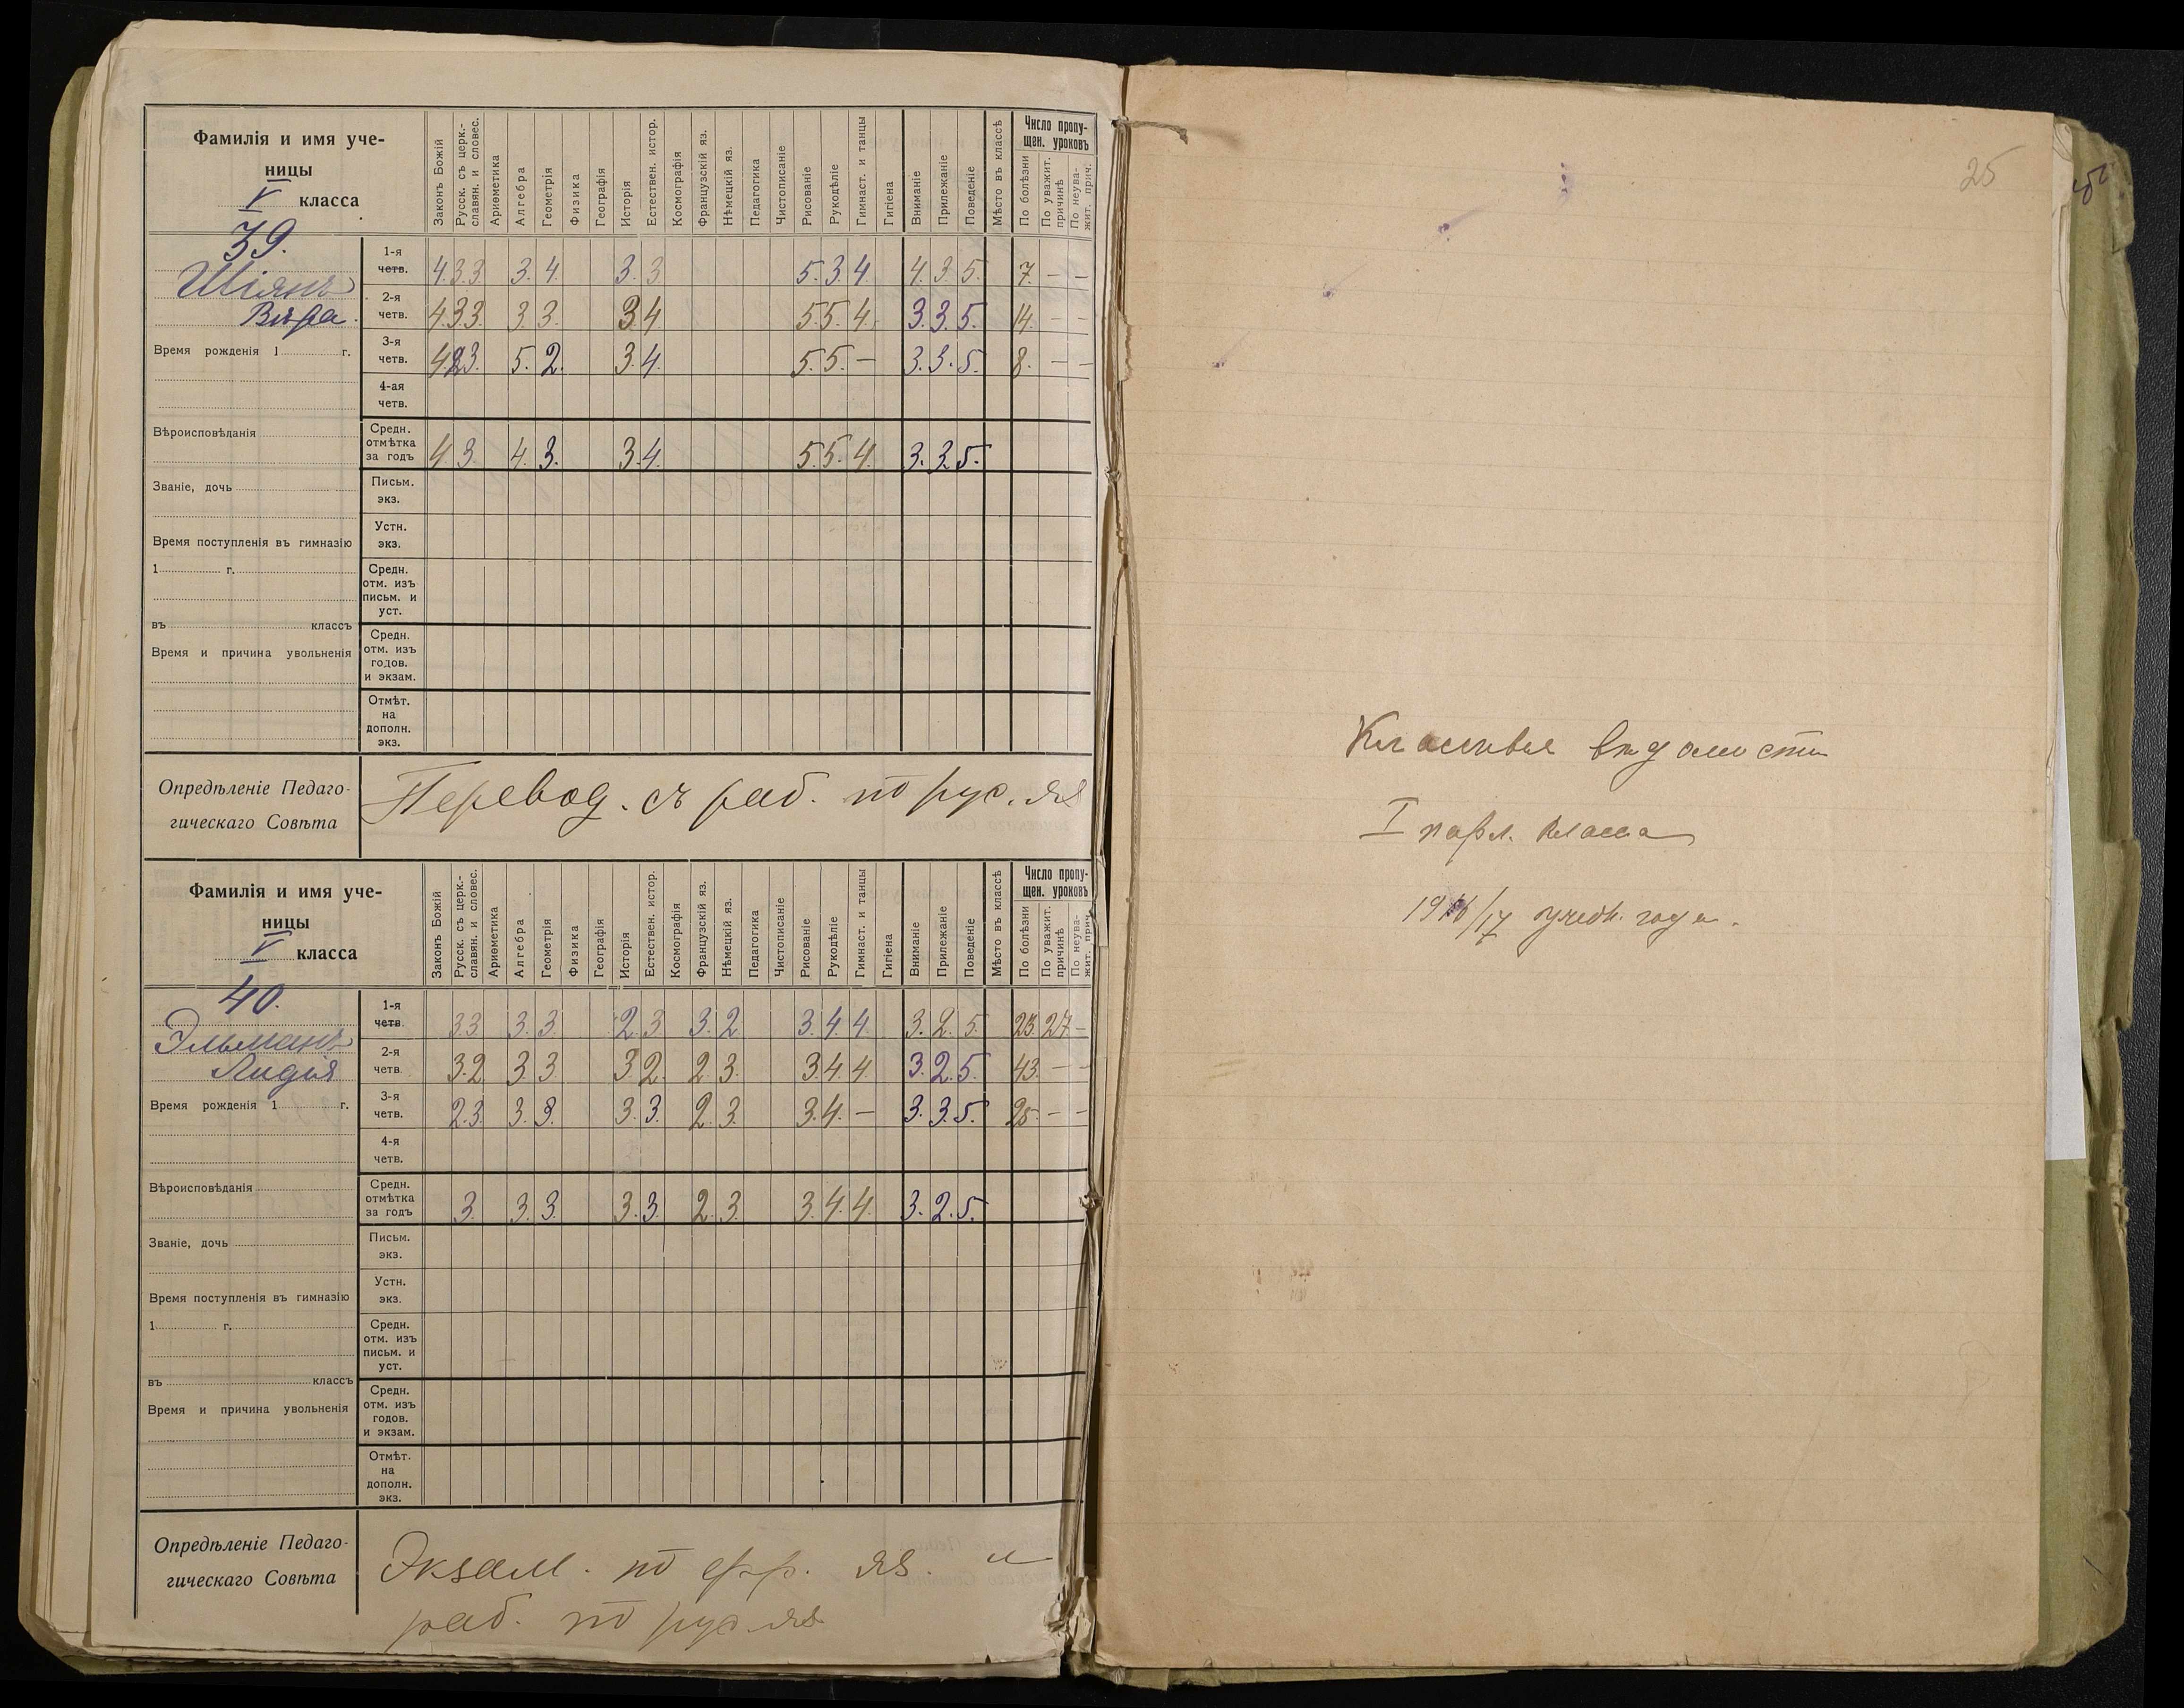 Фамилія и имя уче-
ницы
V класса
Законъ Божій
Русск. съ церк.-
славян. и словес.
Ариѳметика
Алгебра
Геометрія
Физика
Географія
Исторія
Естествен. истор.
Космографія
Французскій яз.
Нѣмецкій яз.
Педагогика
Чистописаніе
Рисованіе
Рукодѣліе
Гимнаст. и танцы
Гигіена
Вниманіе
Прилежаніе
Поведеніе
Мѣсто въ классѣ
Число пропу-
щен. уроковъ
По болѣзни
По уважит.
причинѣ
По неува-
жит. прич.
39.
Шіянъ
Вѣра.
1-я
четв.
4. 3. 3. 3. 4. 3. 3 5. 3. 4. 4. 3. 5. 7. — —
2-я
четв.
4. 3 3. 3. 3. 3 4. 5. 5. 4. 3. 3. 5. 14. — —
Время рожденія 1 г.
3-я
четв.
4. 2 3. 5. 2. 3. 4. 5. 5. — 3. 3. 5. 8. — —
4-ая
четв.
Вѣроисповѣданія
Средн.
отмѣтка
за годъ
4. 3. 4. 3. 3. 4. 5. 5. 4. 3. 3. 5.
Званіе, дочь
Письм.
экз.
Устн.
экз.
Время поступленія въ гимназію
1 г.
Средн.
отм. изъ
письм. и
уст.
въ классъ
Время и причина увольненія
Средн.
отм. изъ
годов.
и экзам.
Отмѣт.
на
дополн.
экз.
Опредѣленіе Педаго-
гическаго Совѣта
Перевод. съ раб. по рус. яз
Фамилія и имя уче-
ницы
V класса
Законъ Божій
Русск. съ церк.-
славян. и словес.
Ариѳметика
Алгебра
Геометрія
Физика
Географія
Исторія
Естествен. истор.
Космографія
Французскій яз.
Нѣмецкій яз.
Педагогика
Чистописаніе
Рисованіе
Рукодѣліе
Гимнаст. и танцы
Гигіена
Вниманіе
Прилежаніе
Поведеніе
Мѣсто въ классѣ
Число пропу-
щен. уроковъ
По болѣзни
По уважит.
причинѣ
По неува-
жит. прич.
40.
Эльманъ
Лидія
1-я
четв.
3. 3. 3. 3. 2. 3. 3. 2. 3. 4. 4. 3. 2. 5. 23. 27. —
2-я
четв.
3. 2. 3. 3. 3. 2. 2. 3. 3. 4. 4. 3. 2. 5. 43. — —
Время рожденія 1 г.
3-я
четв.
2. 3. 3. 3. 3. 3. 2. 3. 3. 4. — 3. 3. 5. 25. — —
4-я
четв.
Вѣроисповѣданія
Средн.
отмѣтка
за годъ
3. 3. 3. 3. 3. 2. 3. 3. 4. 4. 3. 2. 5.
Званіе, дочь
Письм.
экз.
Устн.
экз.
Время поступленія въ гимназію
1 г.
Средн.
отм. изъ
письм. и
уст.
въ классъ
Время и причина увольненія
Средн.
отм. изъ
годов.
и экзам.
Отмѣт.
на
дополн.
экз.
Опредѣленіе Педаго-
гическаго Совѣта
Экзам. по фр. яз. и
раб. по рус. яз
25
Классныя вѣдомости
I парл. класса
1916/17 учебн. года.